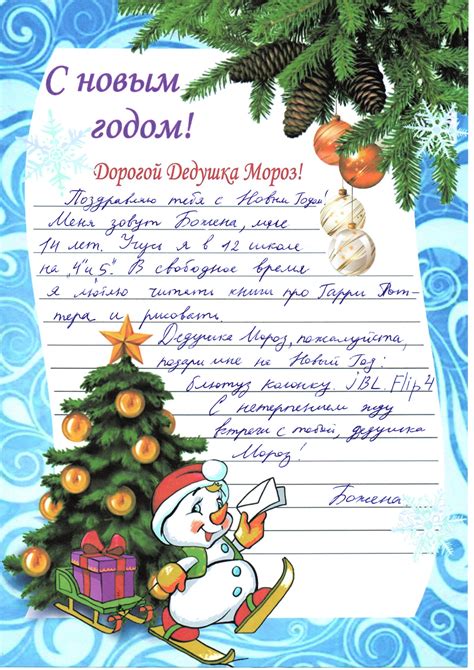 С новым
годом!
Дорогой Дедушка Мороз!
Поздравляю тебя с Новым Годом!
Меня зовут Божена, мне
14 лет. Учусь я в 12 школе
на "4" и 5". В свободное время
я люблю читать книги про Гарри Пот-
тера и рисовать.
Дедушка Мороз, пожалуйста,
подари мне на Новый Год:
блютуз колонку JBL Flip 4
С нетерпением жду
встречи с тобой, дедушка
Мороз!
Божена